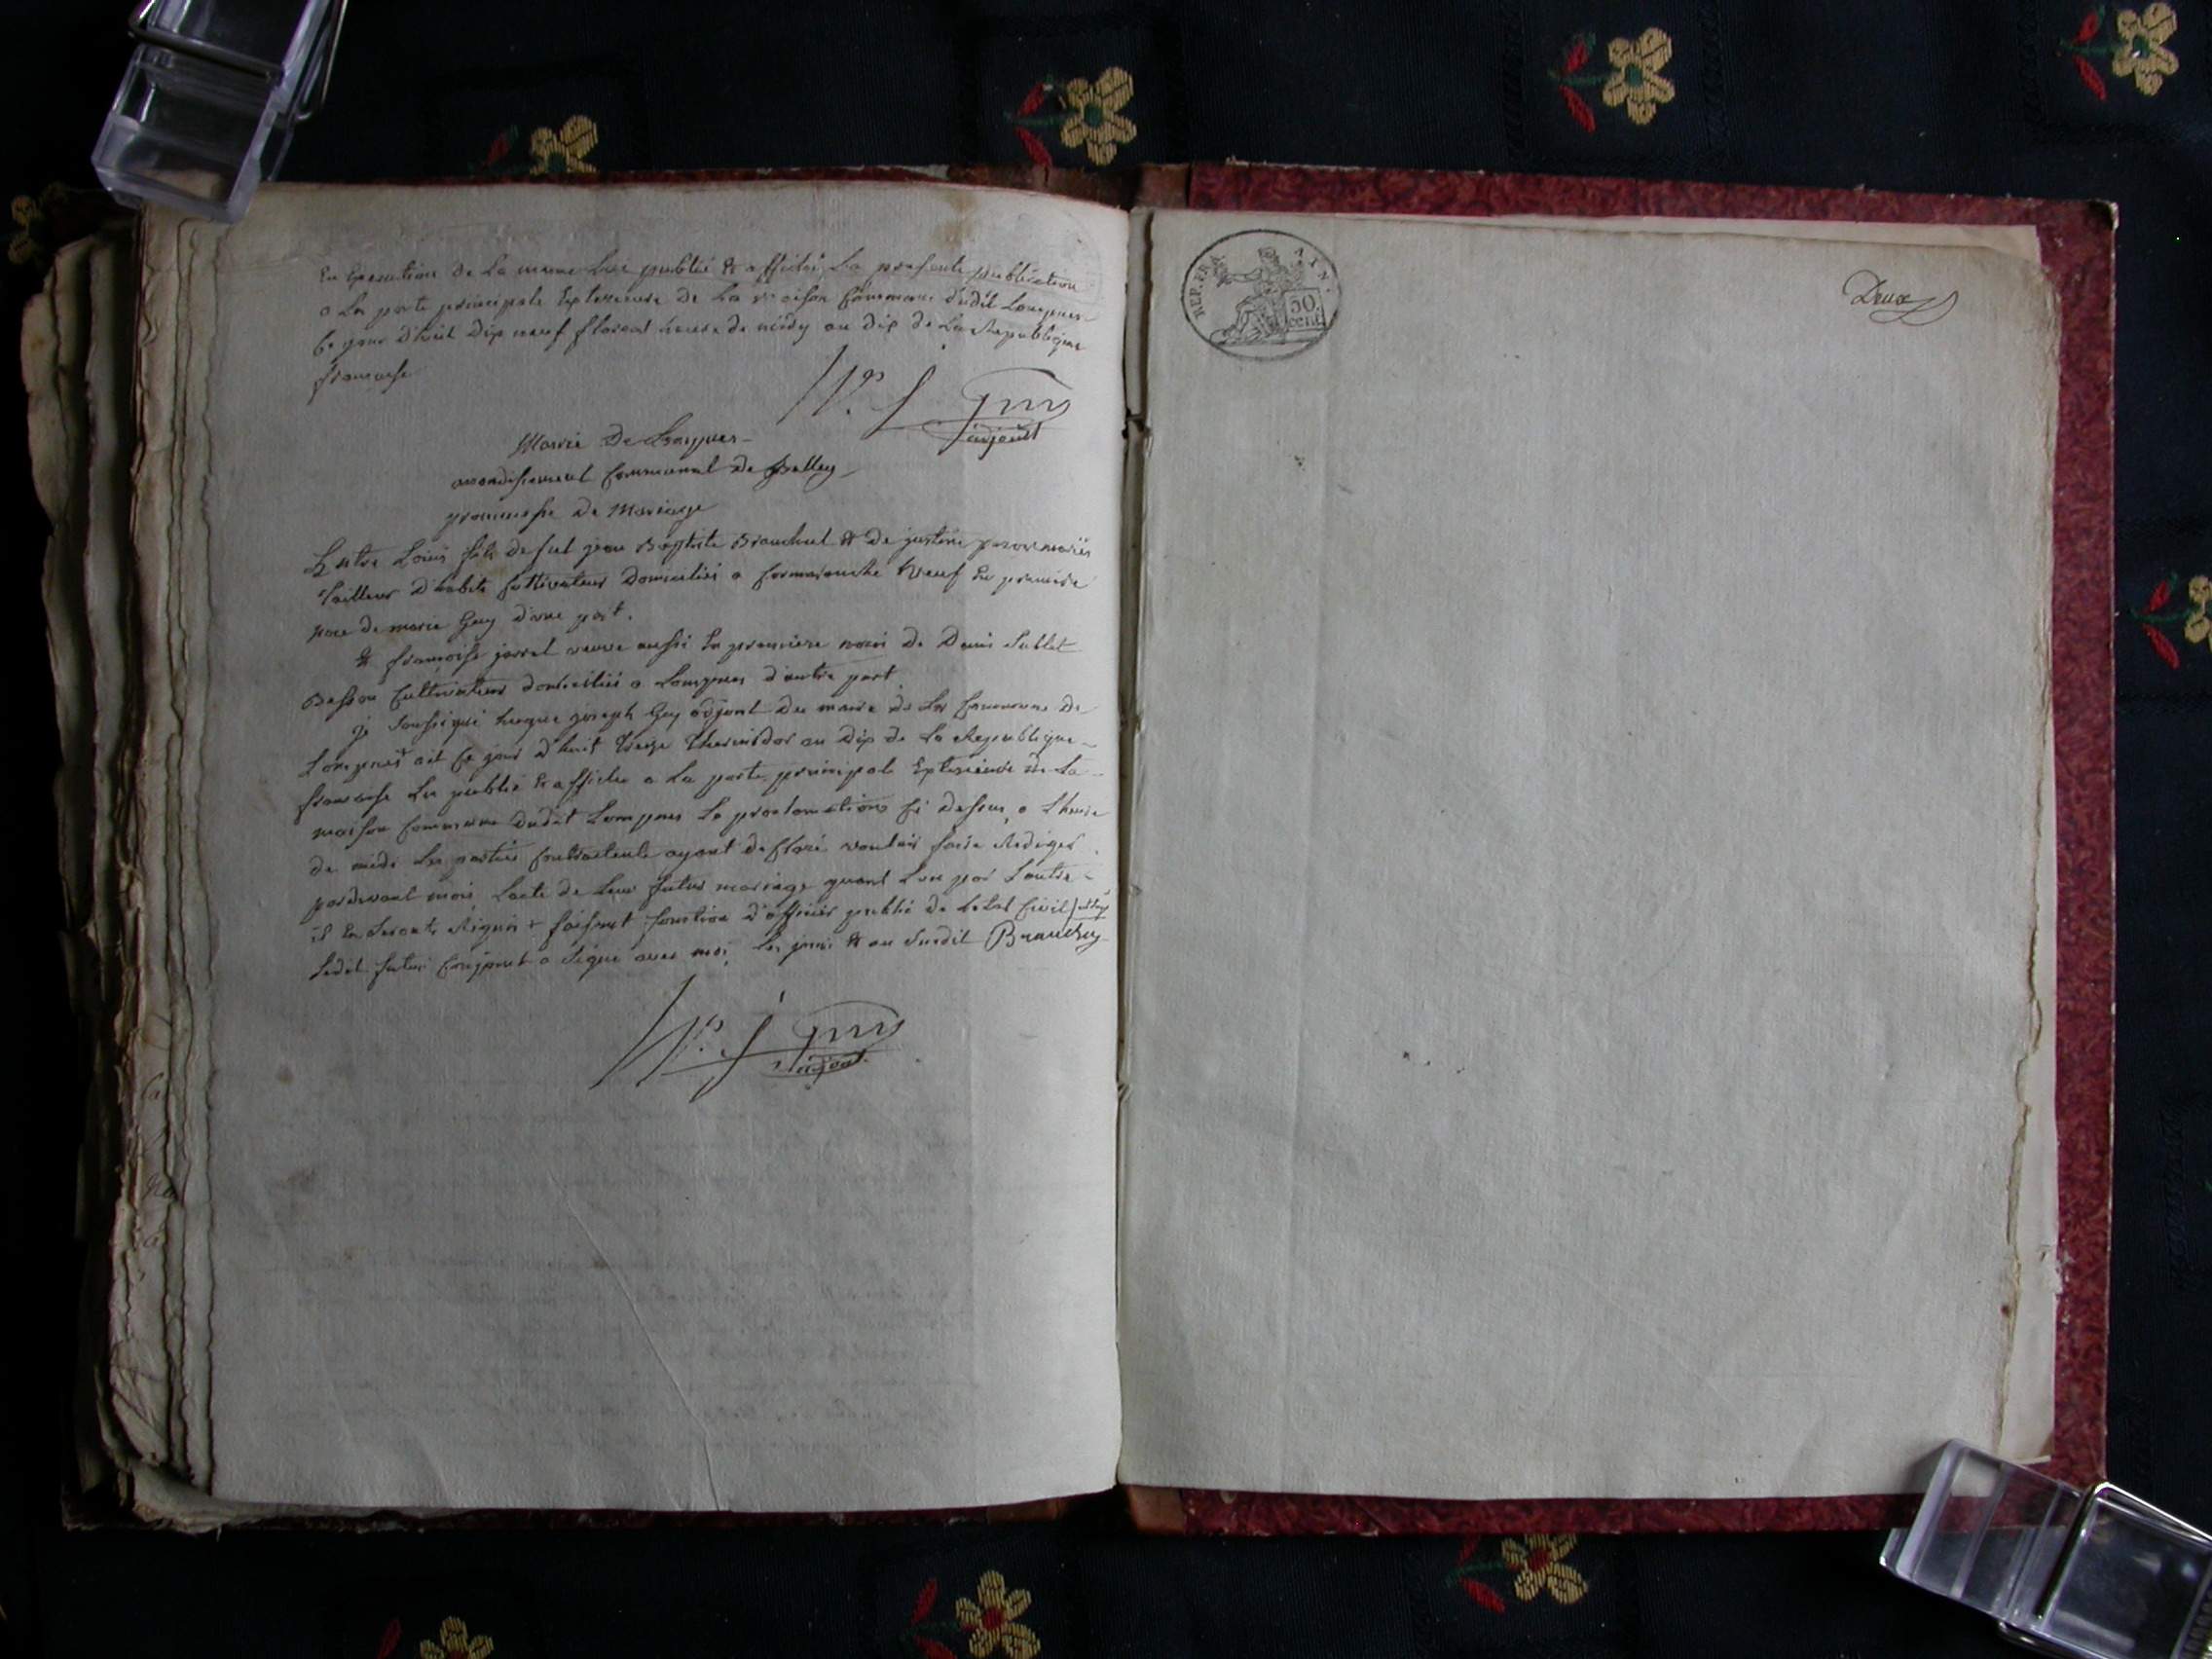 En Execution de la meme Lue publié & affiché La presente publication
a La porte principale Exterieure de La maison Commune dudit Lompnes
Ce jour d'huit Dix neuf floreal heure de midy an dix de La Republique
francaise
hº. J Guy
adjoint
Mairie De Lompnes
arondissement Communal De Belley
promesse De Mariage
Entre Louis fils de fut jean Baptiste Brauchut & de justine mariés
Tailleur d'habits Cultivateur Domiciliés a Cormaranche Veuf En premiere
noce de marie Guy d'une part.
& francoise jarret veuve aussi En premiere noces de Denis Sublet
Besson Cultivateur domiciliés a Lompnes d'autre part
je Soussigné hugue joseph Guy adjoint Du maire de La Commune De
Lompnes ait Ce jour d'huit treize Thermidor an Dix de La Republique
francaise Lu publié & affiché a La porte principale Exterieure de La
maison Commune dudit Lompnes La proclamation Ci dessus a L'heure
de midi Les parties Contractente ayant declaré vouloir faire Rediger
pardevant moi Lacte de Leur futur mariage quant L'un par L'autre
il En Seront Requis + faisant fonction d'officier publié de Letat Civil
Ledit futur Conjoint a Signé avec moi Les jours & an Susdit Brauchuy
hº. J Guy
adjoint
REP. FRA. AIN.
50.
cent.
Deux